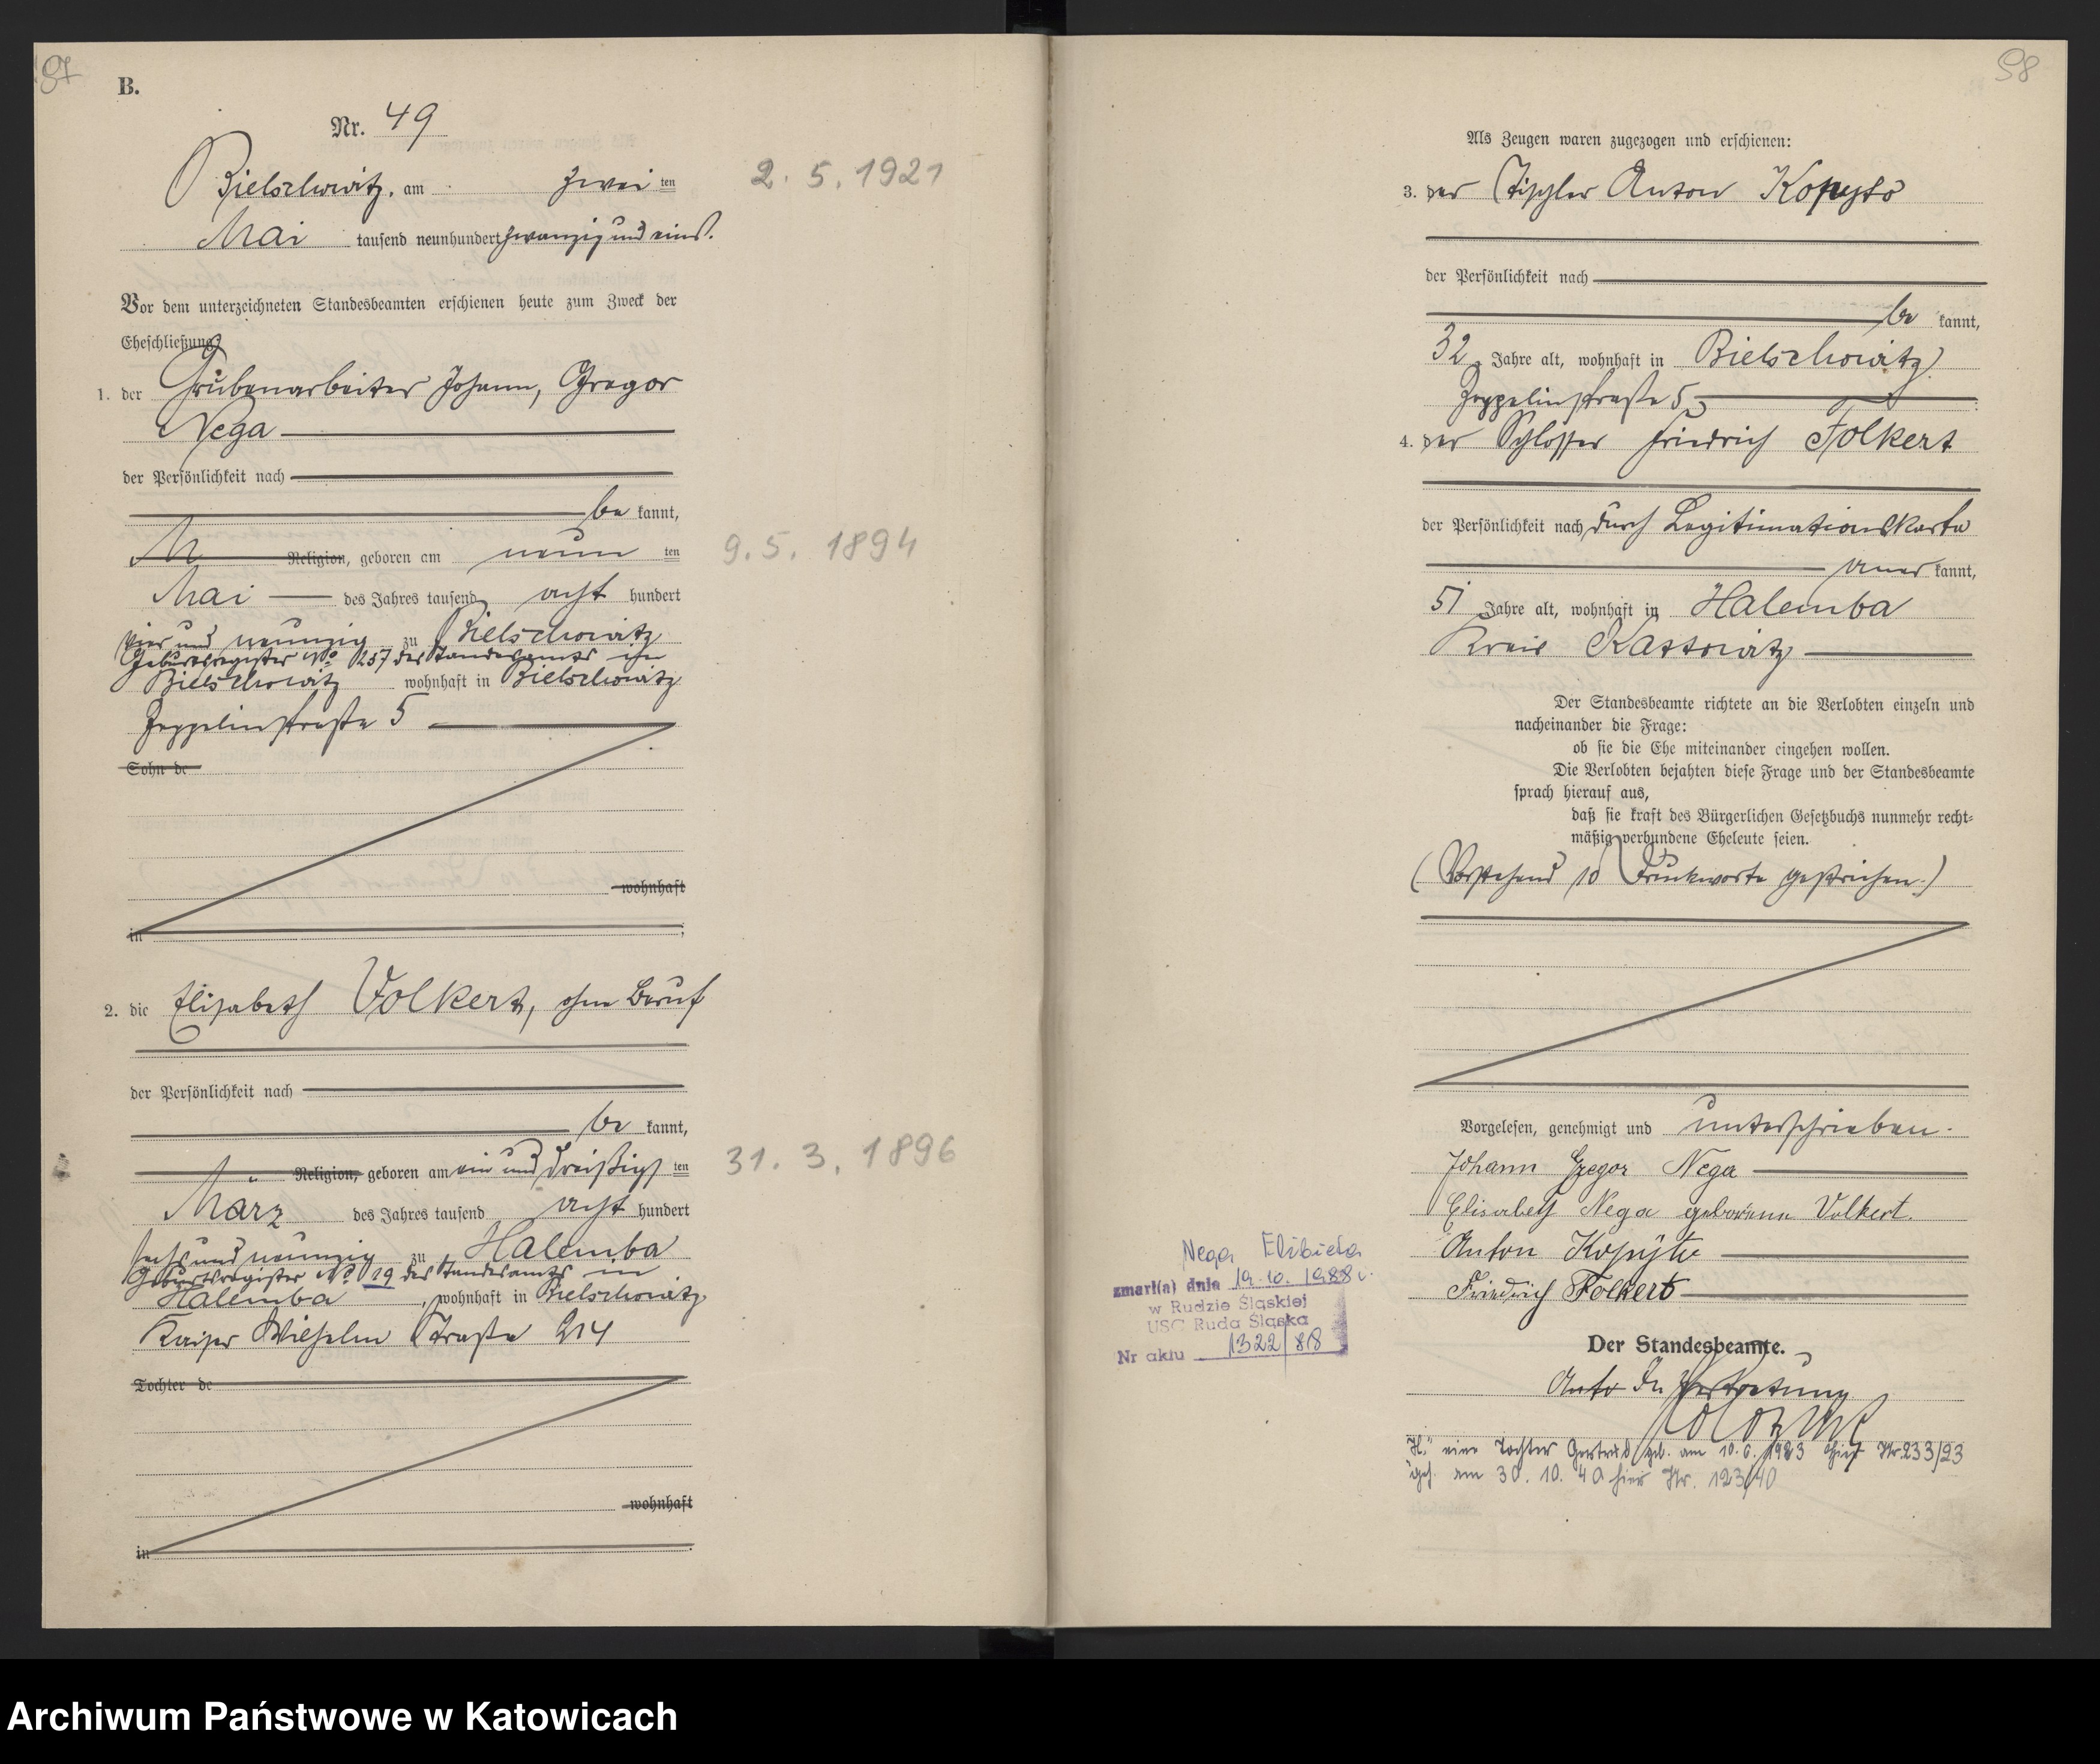 97
B.
Nr. 49
Bielschowitz, am zwei ten
2. 5. 1921
Mai tausend neunhundert zwanzig und eins.
Vor dem unterzeichneten Standesbeamten erschienen heute zum Zweck der
Eheschließung:
1. der Grubenarbeiter Johann, Gregor
Nega
der Persönlichkeit nach
be kannt,
Religion, geboren am neun ten
9. 5. 1894
Mai des Jahres tausend acht hundert
vier und neunzig zu Bielschowitz
Geburtsregister No 257 des Standesamts in
Bielschowitz wohnhaft in Bielschowitz
Zeppelinstraße 5
Sohn de
wohnhaft
in
2. die Elisabeth Volkert, ohne Beruf
der Persönlichkeit nach
be kannt,
Religion, geboren am ein und dreißigs ten
31. 3. 1896
März des Jahres tausend acht hundert
sechs und neunzig zu Halemba
Geburtsregister No 19 des Standesamts in
Halemba, wohnhaft in Bielschowitz
Kaiser Wilhelm Straße 214
Tochter de
wohnhaft
in
98
Als Zeugen waren zugezogen und erschienen:
3. der Tischler Anton Kopyto
der Persönlichkeit nach
be kannt,
32 Jahre alt, wohnhaft in Bielschowitz
Zeppelinstraße 5;
4. der Schlosser Friedrich Folkert
der Persönlichkeit nach durch Legitimationskarte
aner kannt,
51 Jahre alt, wohnhaft in Halemba
Kreis Kattowitz
Der Standesbeamte richtete an die Verlobten einzeln und
nacheinander die Frage:
ob sie die Ehe miteinander eingehen wollen.
Die Verlobten bejahten diese Frage und der Standesbeamte
sprach hierauf aus,
daß sie kraft des Bürgerlichen Gesetzbuchs nunmehr recht-
mäßig verbundene Eheleute seien.
(Vorstehend 10 Druckworte gestrichen.)
Vorgelesen, genehmigt und unterschrieben.
Johann Gregor Nega
Elisabeth Nega geborene Volkert.
Anton Kopyto
Friedrich Folkert
Der Standesbeamte.
In Vertretung
Nega Elżbieta
zmarł(a) dnia 19.10.1988 r.
w Rudzie Śląskiej
USC Ruda Śląska
Nr aktu 1322/88
eine Tochter Gertrud geb. am 10. 6. 1923 hier Nr. 233/23
geh. am 30. 10. 40 hier Nr. 123/40
Archiwum Państwowe w Katowicach